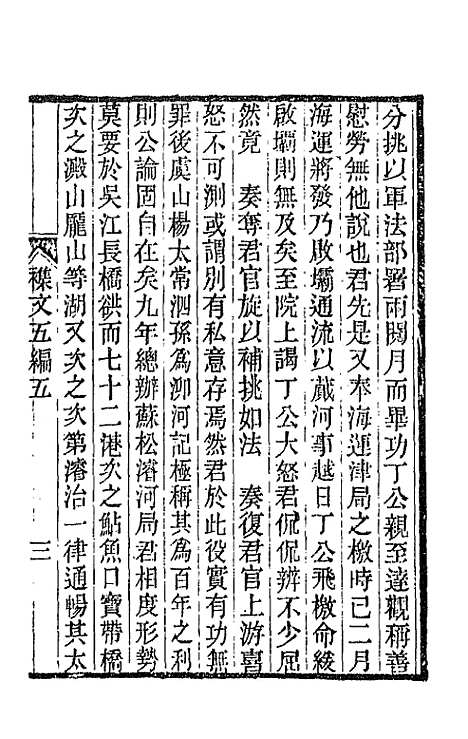 分挑以軍法部署兩閱月而畢功丁公親至達觀稱善
慰勞無他說也君先是又奉海運津局之檄時已二月
海運將發乃啟壩通流以蕆河事越日丁公飛檄命緩
啟壩則無及矣至院上謁丁公大怒君侃侃辨不少屈
然竟　奏奪君官旋以補挑如法　奏復君官上游喜
怒不可測或謂別有私意存焉然君於此役實有功無
罪後虞山楊太常泗孫為泖河記極稱其為百年之利
則公論固自在矣九年總辦蘇松濬河局君相度形勢
莫要於吳江長橋谼而七十二港次之鮎魚口寶帶橋
次之澱山龐山等湖又次之次第濬治一律通暢其太
襍文五編五
三